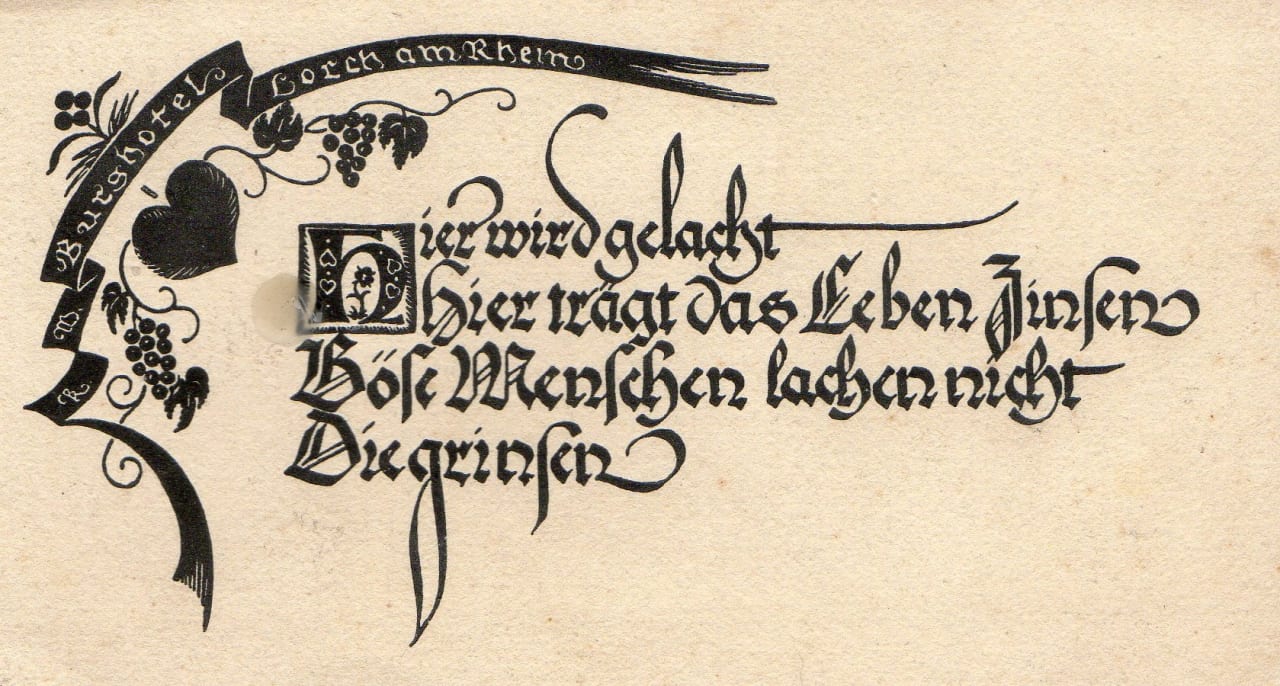 Burghotel Lorch am Rhein
W. K
Hier wird gelacht
Hier trägt das Leben Zinsen
Böse Menschen lachen nicht
Die grinsen